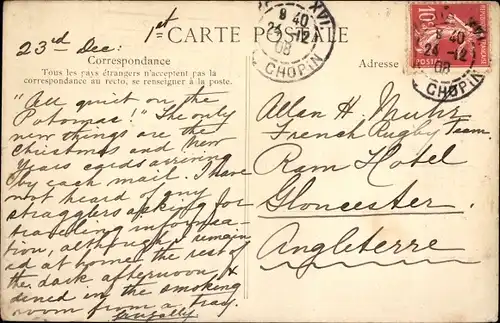 23rd Dec:
1st
CARTE POSTALE
Correspondance
Tous les pays étrangers n'acceptent pas la
correspondance au recto, se renseigner à la poste.
Adresse
"All quiet on the
Potomac!" The only
new things are the
Christmas and New
Years cards arriving
by each mail. I have
not heard of any
stragglers asking for
traveling informa-
tion, although I remain
ed at home the rest of
the dark afternoon, &
dined in the smoking
room from a tray.
frugally
Allan H. Muhr
French Rugby Team
Ram Hotel
Gloucester
Angleterre
XVI
8 40
24 -12
08
CHOPIN
10
POSTES
XVI
8 40
24 -12
08
CHOPIN